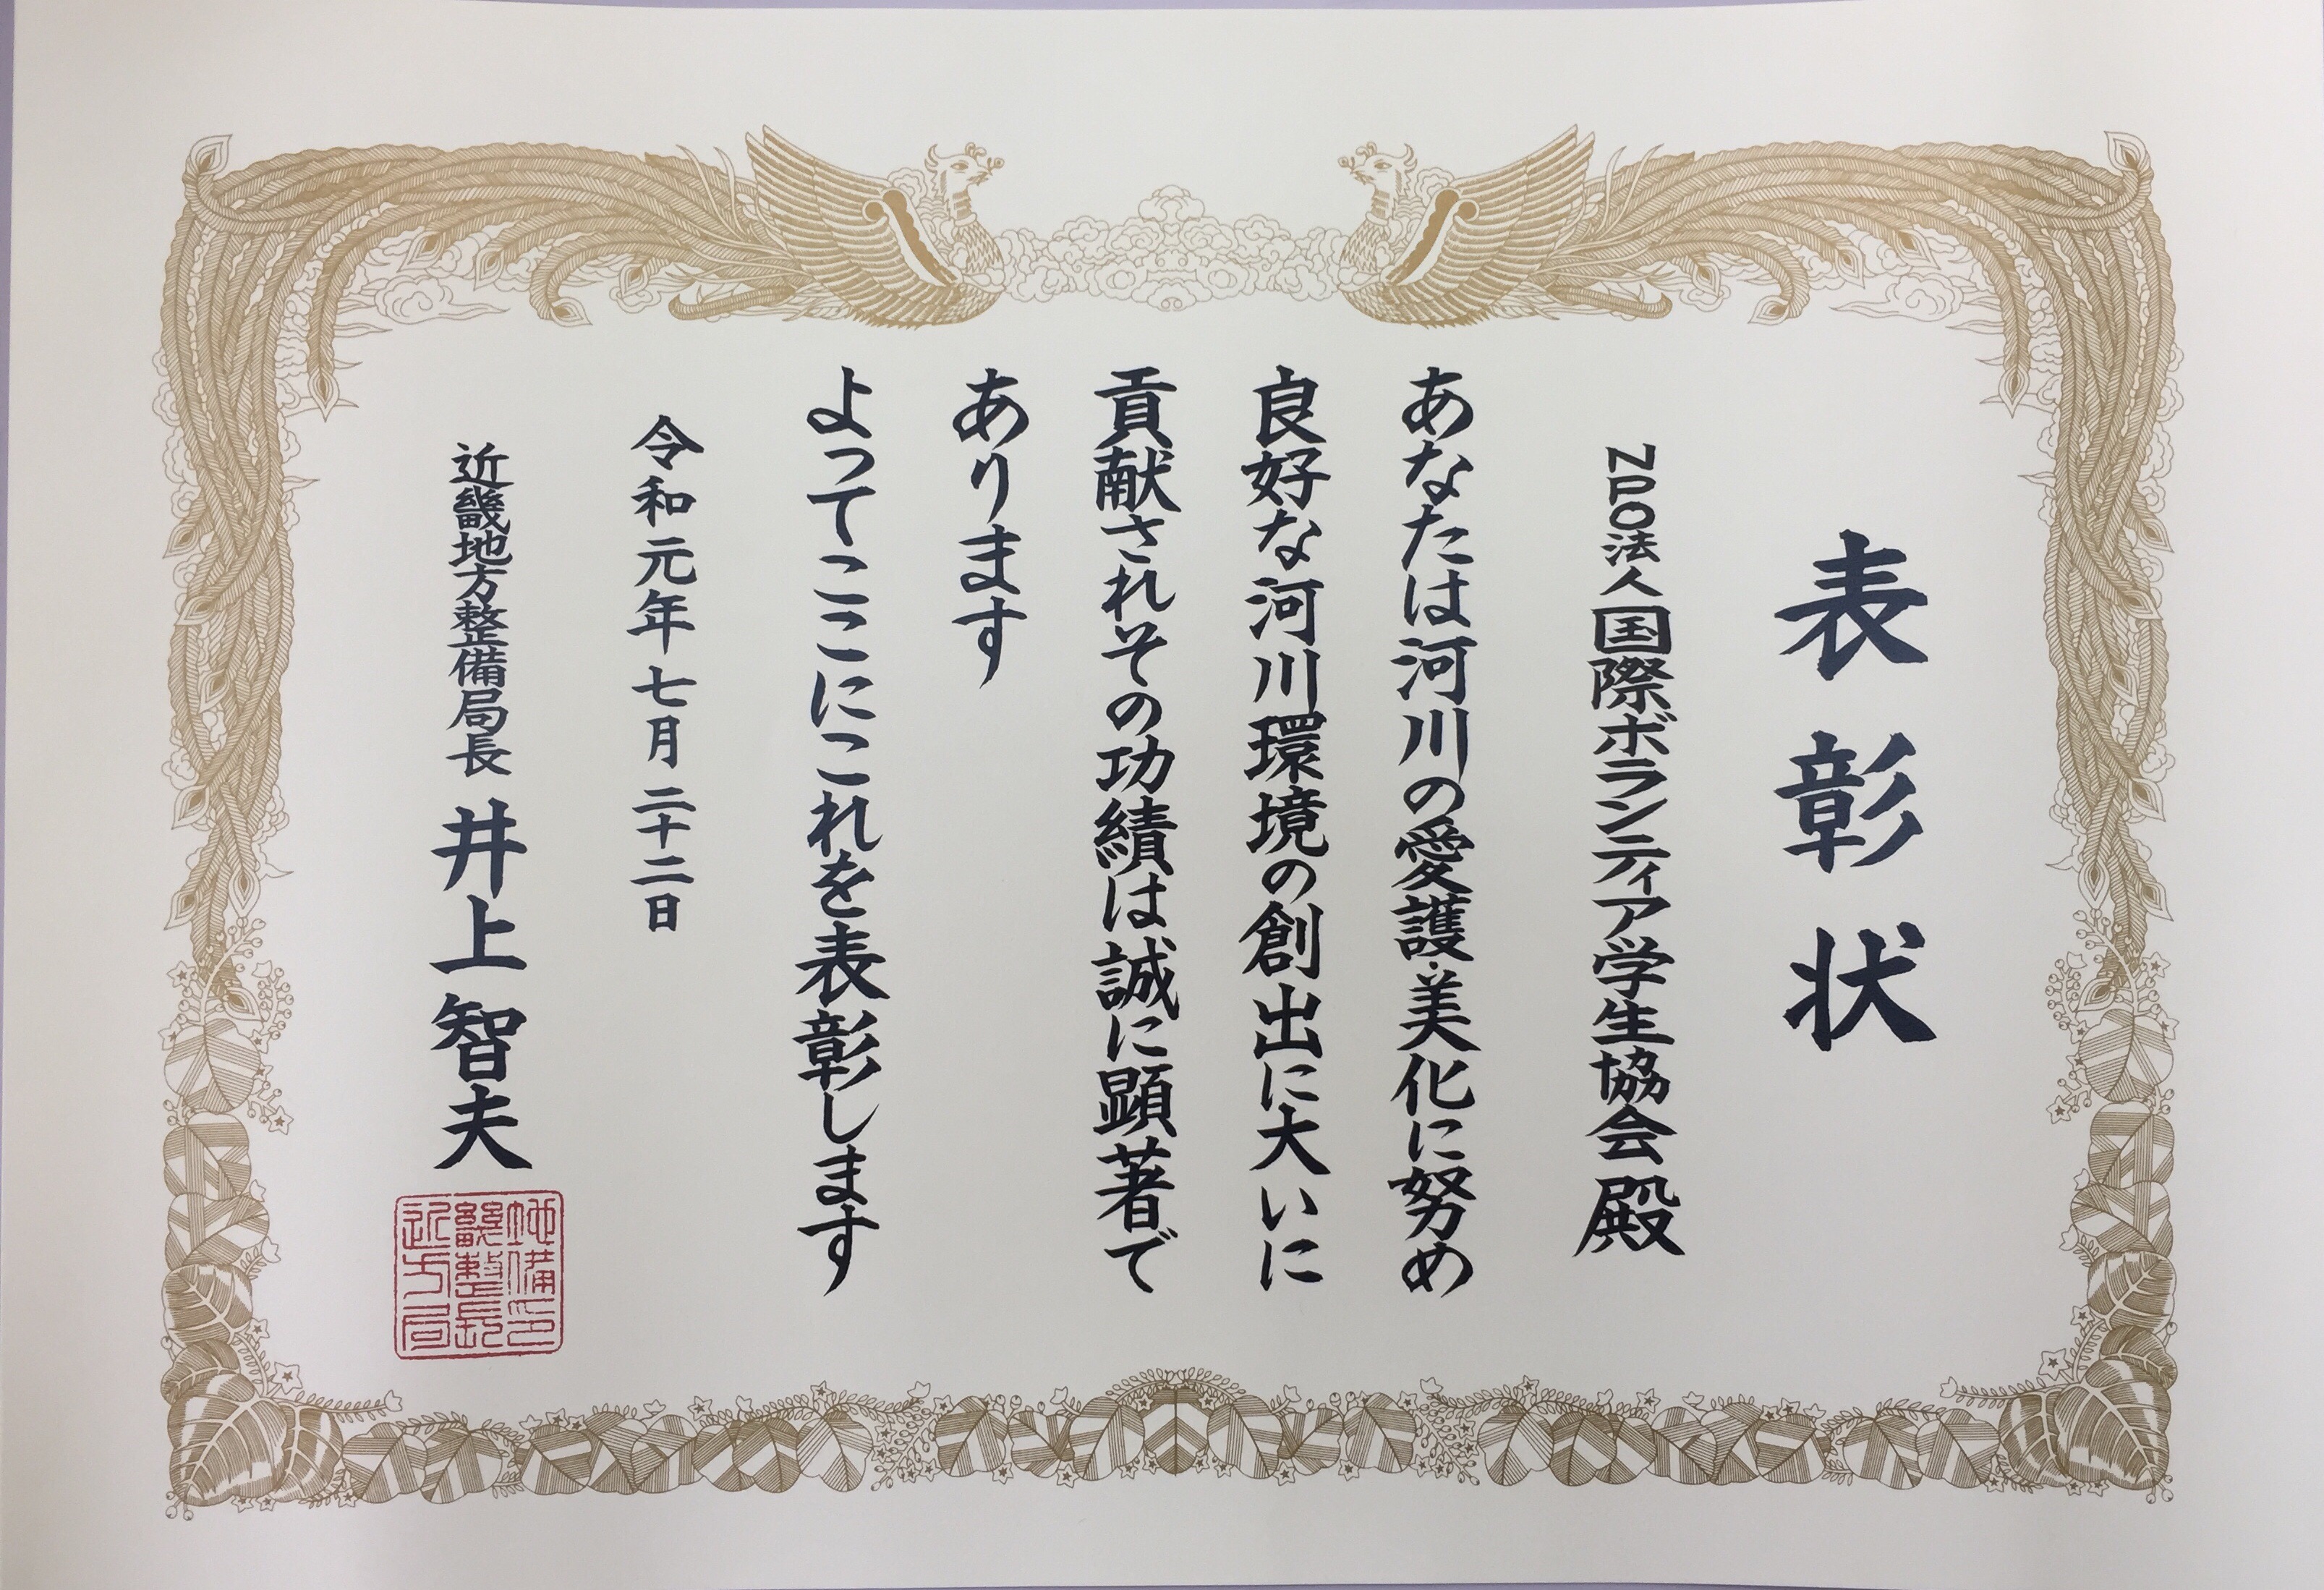 表彰状
NPO法人国際ボランティア学生協会殿
あなたは河川の愛護・美化に努め
良好な河川環境の創出に大いに
貢献されその功績は誠に顕著で
あります
よってここにこれを表彰します
令和元年七月二十二日
近畿地方整備局長 井上智夫
近畿地
方整備
局長印